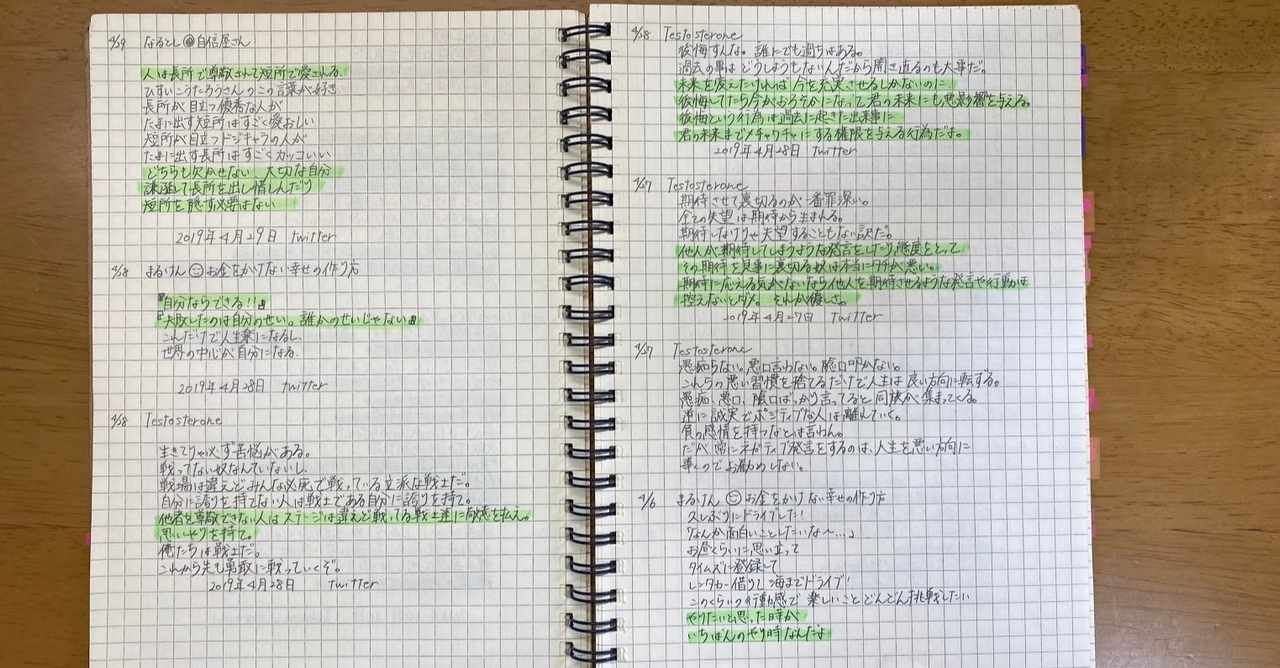 4/29 なるとし@自信屋さん
人は長所で尊敬されて短所で愛される。
ひすいこうたろうさんのこの言葉が好き
長所が目立つ優秀な人が
たまに出す短所はすごく愛おしい
短所が目立つドジキャラの人が
たまに出す長所はすごくカッコいい
どちらも欠かせない 大切な自分
謙遜して長所を出し惜しんだり
短所を隠す必要はない
2019年4月29日 twitter
4/28 まるけん お金をかけない幸せの作り方
『自分ならできる!!』
『失敗したのは自分のせい。誰かのせいじゃない』
これだけで人生楽になるし、
世界の中心が自分になる。
2019年4月28日 twitter
4/28 Testosterone
生きてりゃ必ず苦悩がある。
戦ってない奴なんていないし、
戦場は違えどみんな必死で戦っている立派な戦士だ。
自分に誇りを持てない人は戦士である自分に誇りを持て。
他者を尊敬できない人はステージは違えど戦ってる戦士達に敬意を払え。
思いやりを持て。
俺たちは戦士だ。
これから先も勇敢に戦っていくぞ。
2019年4月28日 twitter
4/28 Testosterone
後悔すんな。誰にでも過ちはある。
過去の事はどうしようもないんだから開き直るのも大事だ。
未来を変えたければ今を充実させるしかないのに
後悔してたら今がおろそかになって君の未来にも悪影響を与える。
後悔という行為は過去に起きた出来事に
君の未来までメチャクチャにする権限を与える行為だよ。
2019年4月28日 twitter
4/27 Testosterone
期待させて裏切るのが一番罪深い。
全ての失望は期待から生まれる。
期待しなけりゃ失望することもない訳だ。
他人が期待してしまうような発言をしたり、態度をとって
その期待を見事に裏切る奴は本当にタチが悪い。
期待に応える気がないなら他人を期待させるような発言や行動は
控えないとダメ。それが優しさ。
2019年4月27日 twitter
4/27 Testosterone
愚痴らない。悪口言わない。陰口叩かない。
これらの悪い習慣を捨てるだけで人生は良い方向に転する。
愚痴、悪口、陰口ばっかり言ってると同族が集まってくる。
逆に誠実でポジティブな人は離れていく。
負の感情を持つなとは言わん。
だが常にネガティブ発言をするのは、人生を悪い方向に
導くのでお勧めしない。
4/6 まるけん お金をかけない幸せの作り方
久しぶりにドライブした!
「なんか面白いことしたいな〜…」
お昼くらいに思い立って
タイムズに登録して
レンタカー借りて海までドライブ!
このくらいの行動感で楽しいことどんどん挑戦したい
やりたいと思った時が
いちばんのやり時なんだよ